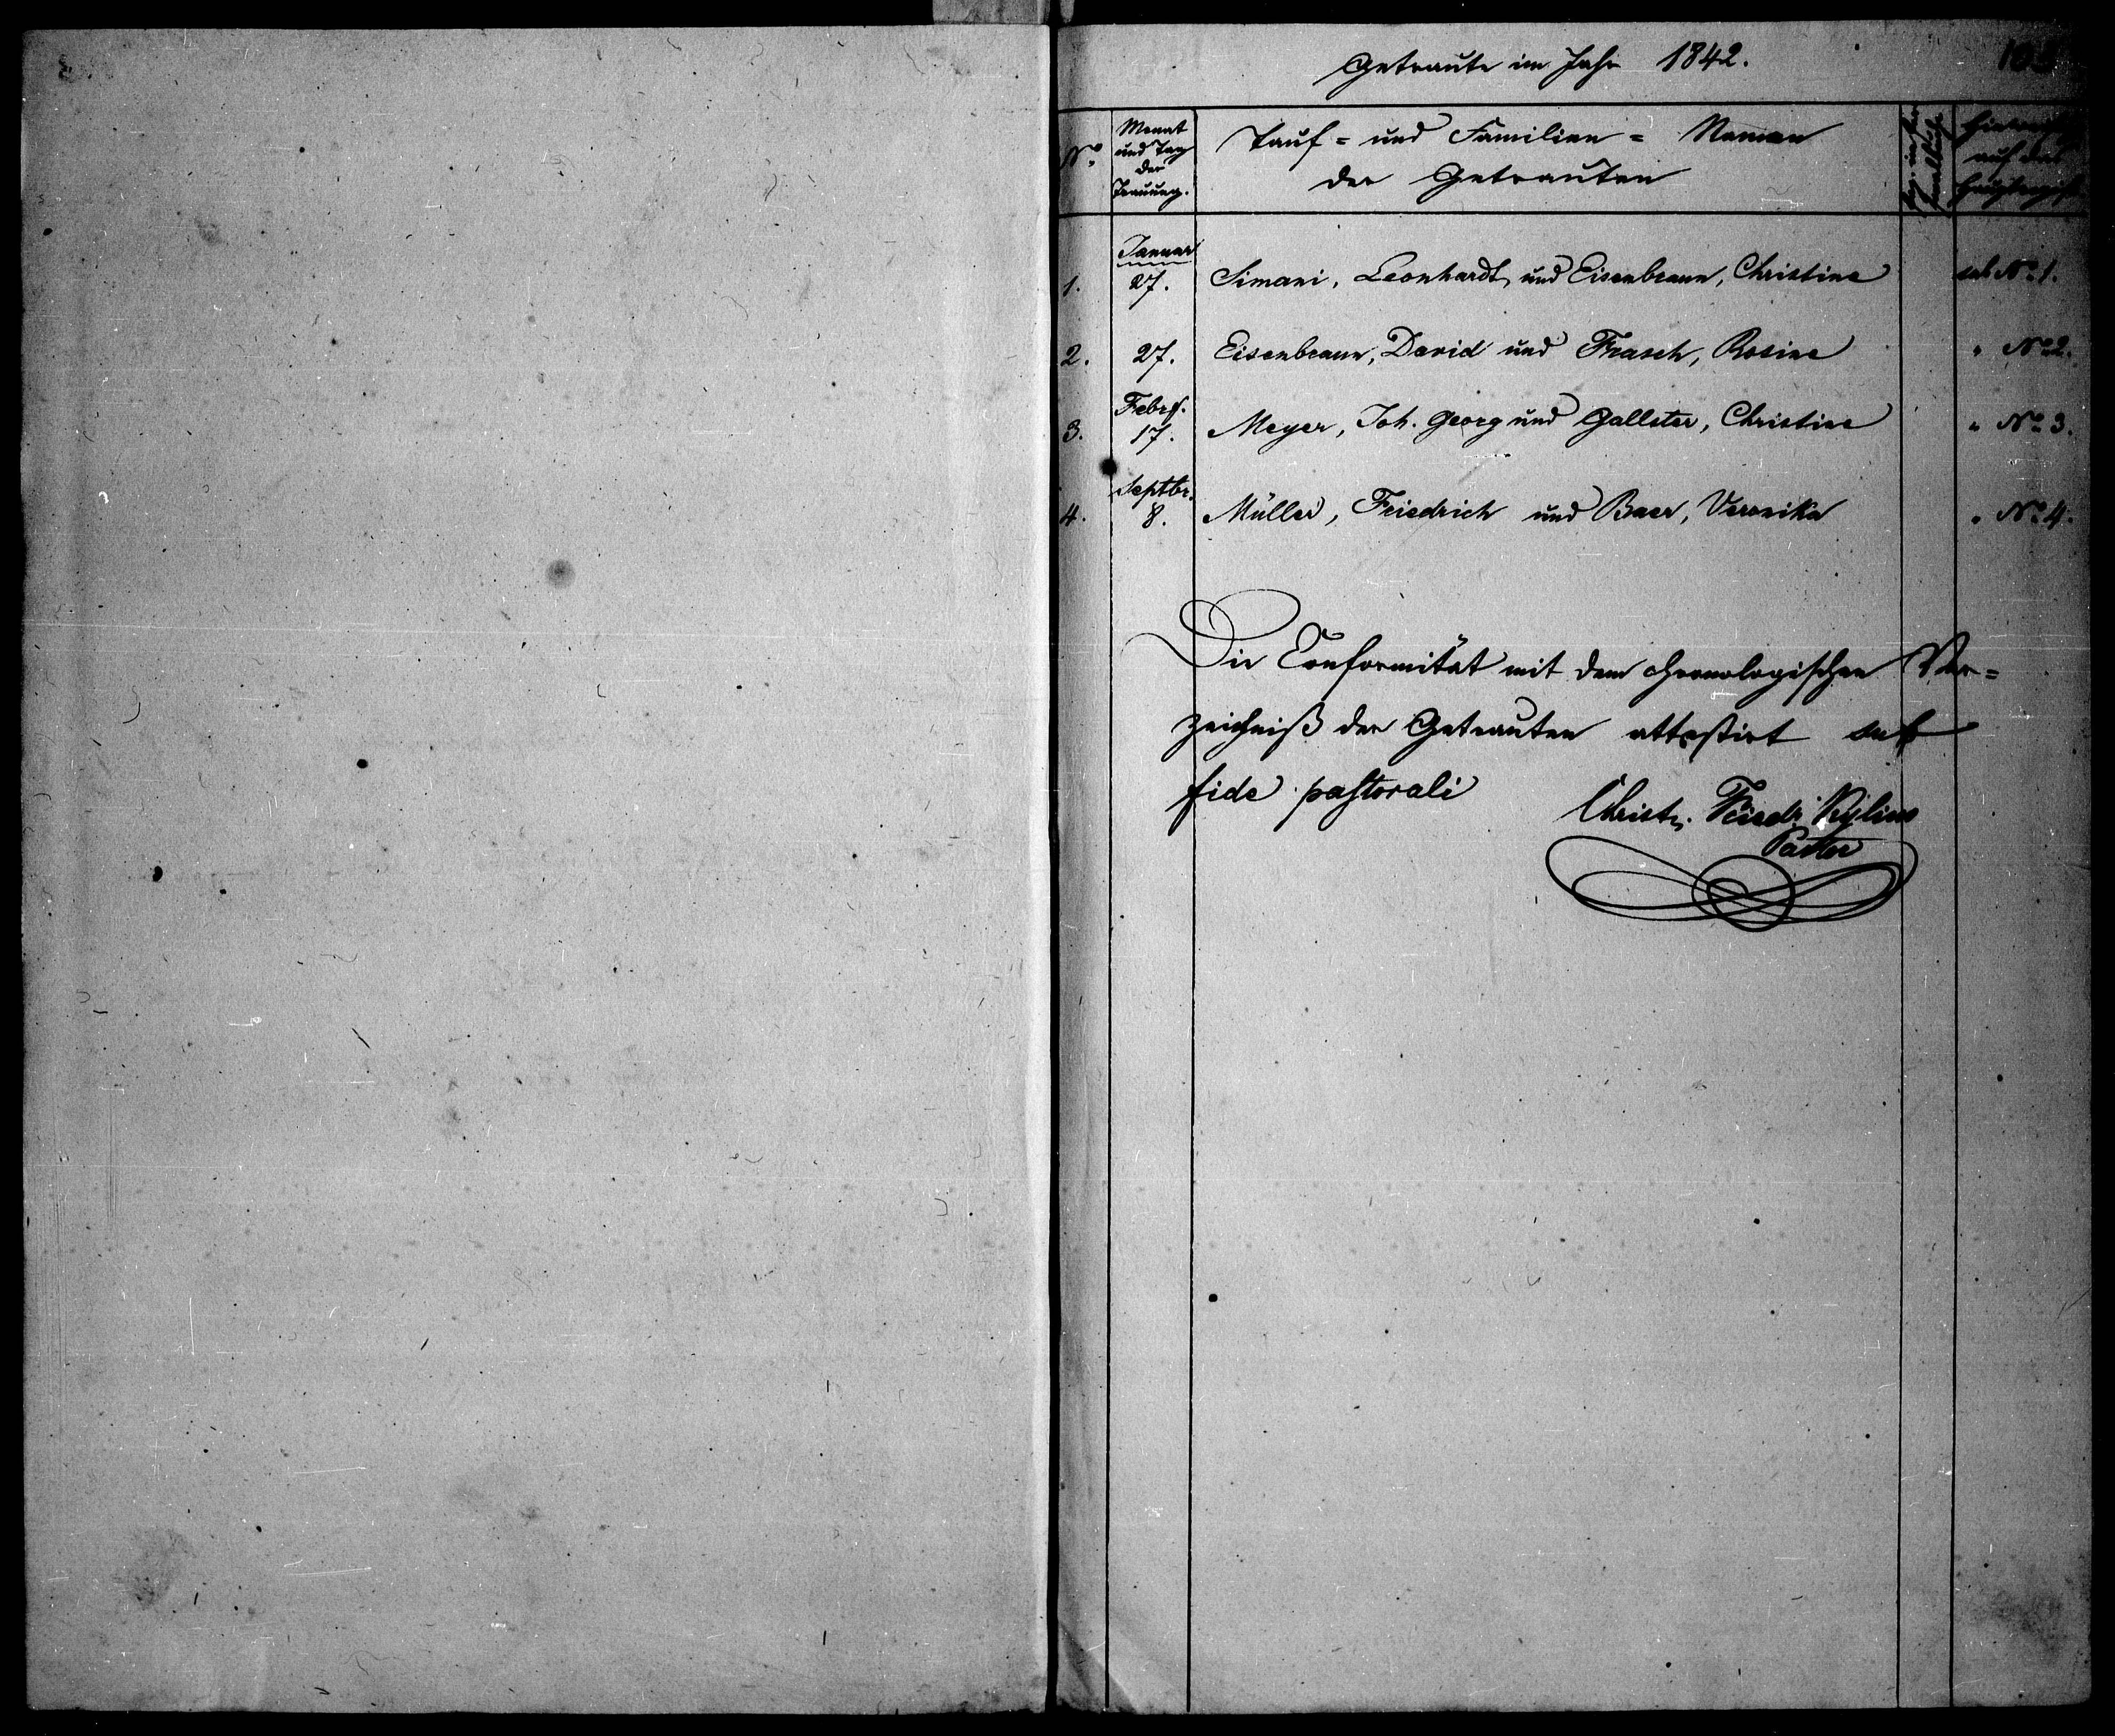 Getraute im Jahr 1842.
No
Monat
und Tag
der
Trauung.
Tauf= und Familien= Namen
der Getrauten
auf das
Januar
1. 27. Simani, Leonhardt, und Eisenbraun, Christine sub No 1.
2. 27. Eisenbraun, David und Frasch, Rosine " No 2.
Febr.
3. 17. Meyer, Joh. Georg und Gallster, Christine " No 3.
Septbr.
4. 8. Müller, Friedrich und Baer, Veronika " No 4.
Die Conformität mit dem chronologischen Ver=
zeichniß der Getrauten attestirt sub
fide pastorali
Christ. Friedr.
Pastor